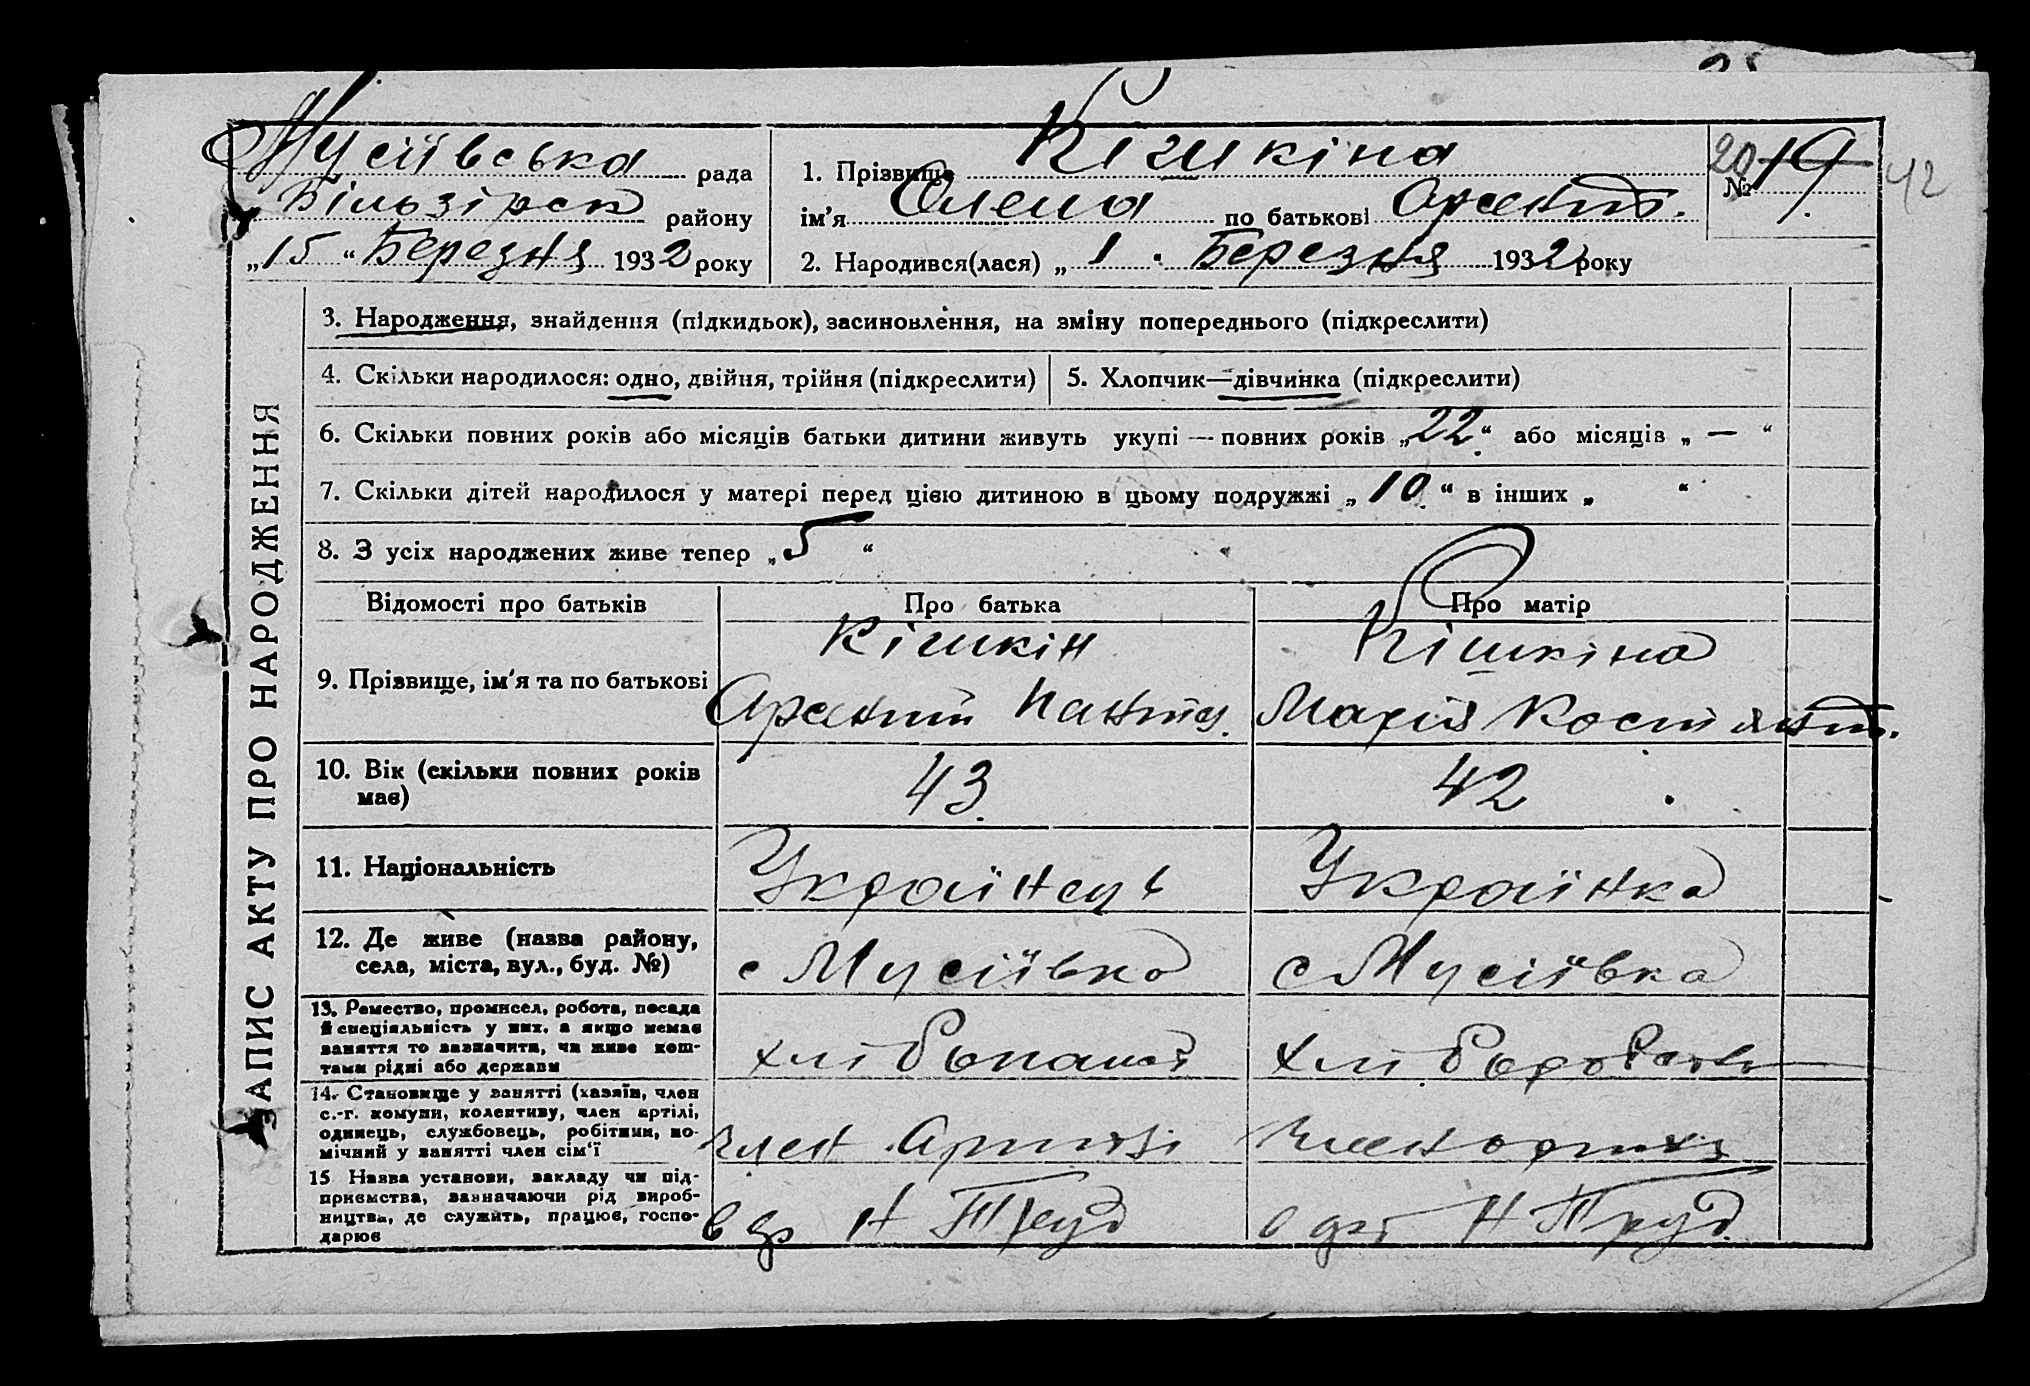 Мусіївська рада
Більзірск району
„15“ Березня 1932 року
1. Прізвище Кішкіна
ім'я Олена по батькові Орехтит.
2. Народився(лася) „1“ Березня 1932 року
20 № 19 42
ЗАПИС АКТУ ПРО НАРОДЖЕННЯ
3. Народження, знайдення (підкидьок), засиновлення, на зміну попереднього (підкреслити)
4. Скільки народилося: одно, двійня, трійня (підкреслити)
5. Хлопчик—дівчинка (підкреслити)
6. Скільки повних років або місяців батьки дитини живуть укупі — повних років „22“ або місяців „ — “
7. Скільки дітей народилося у матері перед цією дитиною в цьому подружжі „10“ в інших „ “
8. З усіх народжених живе тепер „5“
Відомості про батьків
Про батька
Про матір
9. Прізвище, ім'я та по батькові
Кішкін
Кішкіна
Марія Костянт.
10. Вік (скільки повних років має)
43
42
11. Національність
Українець
Українка
12. Де живе (назва району, села, міста, вул., буд. №)
с Мусіївка
с Мусіївка
13. Ремество, промисел, робота, посада й спеціальність у них, а якщо немає заняття то зазначити, чи живе коштами рідні або держави
14. Становище у занятті (хазяїн, член с.-г. комуни, колективу, член артілі, одинець, службовець, робітник, помічний у занятті член сім'ї
член Артілі
член артілі
15 Назва установи, закладу чи підприємства, зазначаючи рід виробництва, де служить, працює, господарює
Н Труд
Н Труд